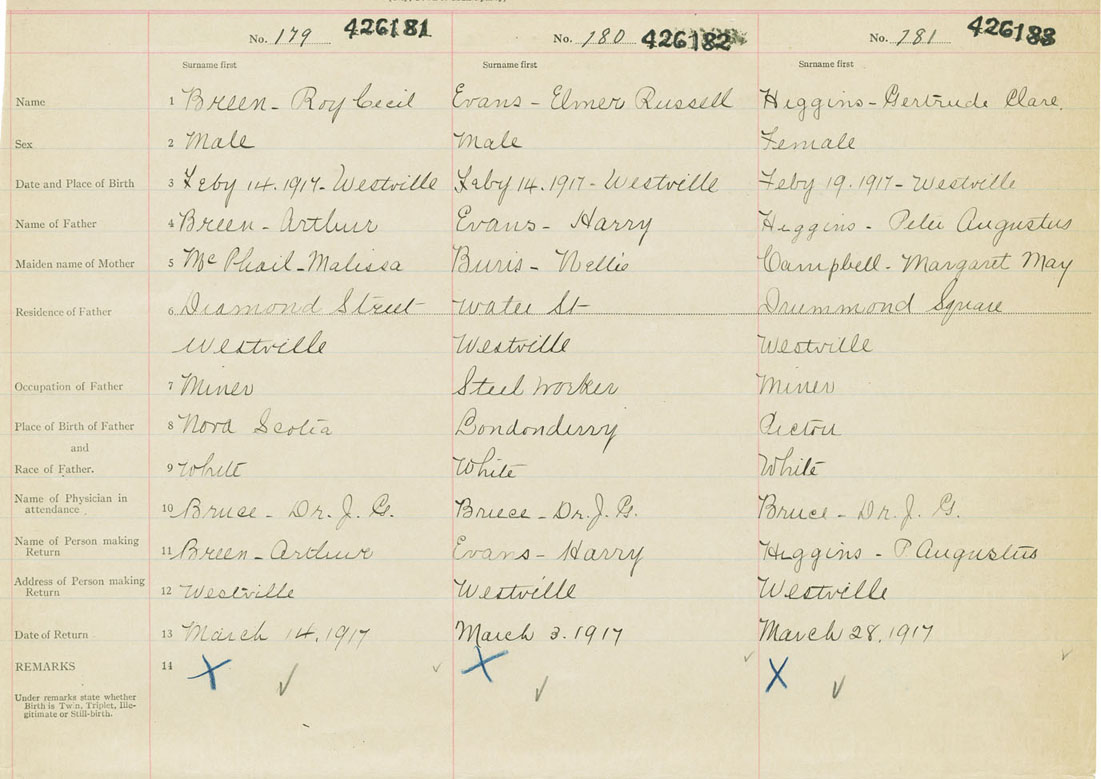 No. 179 426181 No. 180 426182 No. 181 426183
Surname first Surname first Surname first
Name 1 Breen - Roy Cecil Evans - Elmer Russell Higgins - Gertrude Clare.
Sex 2 Male Male Female
Date and Place of Birth 3 Feby 14. 1917 - Westville Feby 14. 1917 - Westville Feby 19. 1917 - Westville
Name of Father 4 Breen - Arthur Evans - Harry Higgins - Peter Augustus
Maiden name of Mother 5 McPhail - Malissa Buris - Nellie Campbell - Margaret May
Residence of Father 6 Diamond Street Water St Drummond Square
Westville Westville Westville
Occupation of Father 7 Miner Steel Worker Miner
Place of Birth of Father 8 Nova Scotia Londonderry Pictou
and
Race of Father. 9 White White White
Name of Physician in
attendance 10 Bruce - Dr. J. G. Bruce - Dr. J. G. Bruce - Dr. J. G.
Name of Person making
Return 11 Breen - Arthur Evans - Harry Higgins - P Augustus
Address of Person making
Return 12 Westville Westville Westville
Date of Return 13 March 14. 1917 March 3. 1917 March 28. 1917
REMARKS 14 X X X
Under remarks state whether
Birth is Twin, Triplet, Ille-
gitimate or Still-birth.